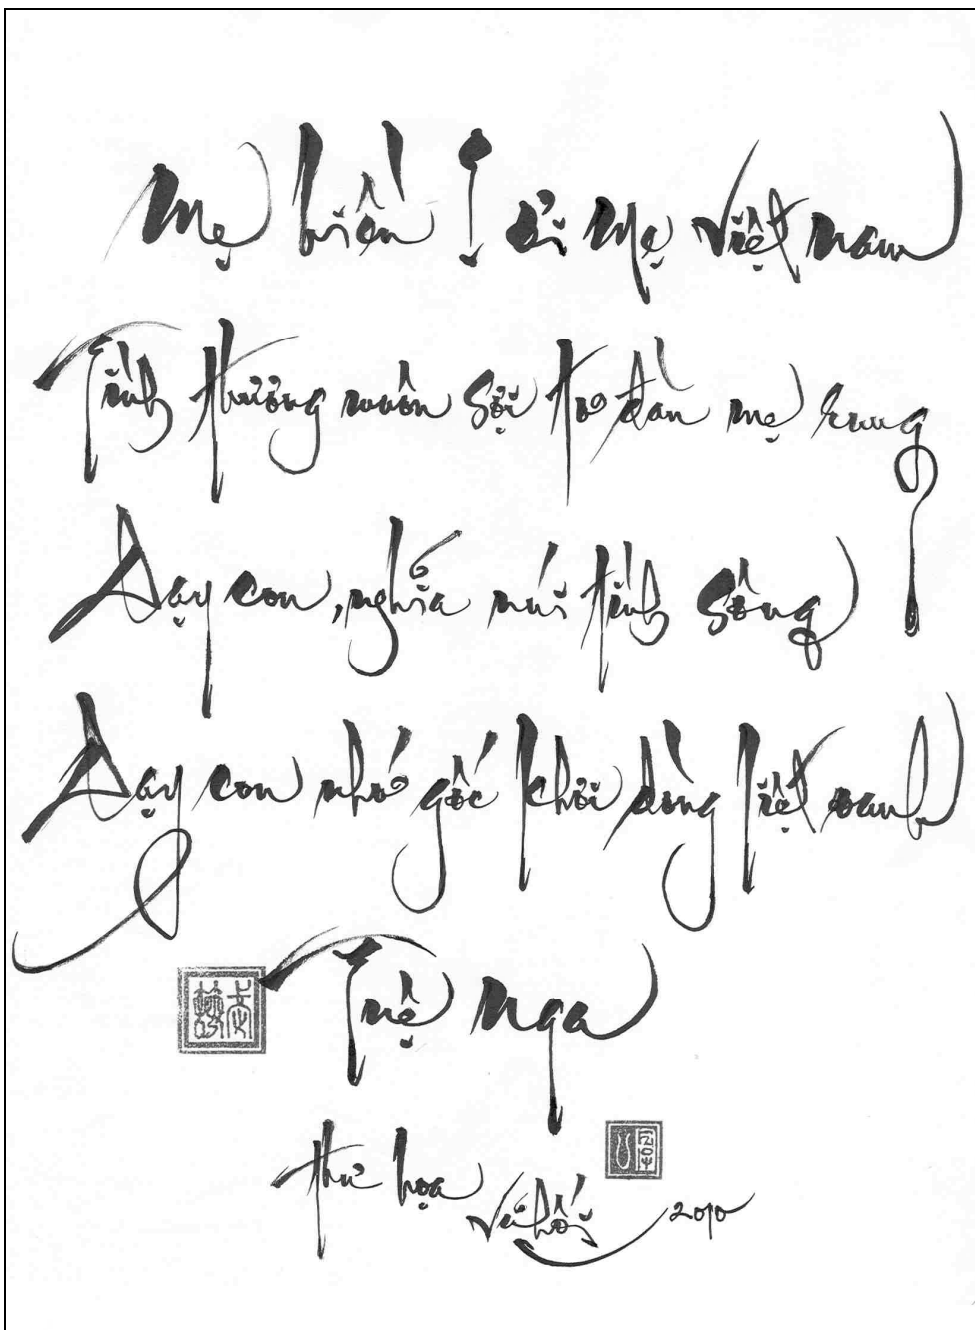 Mẹ hiền ! ơi Mẹ Việt Nam
Tình thương muôn sợi tơ đàn mẹ rung
Dạy con, nghĩa núi tình sông
Dạy con nhớ gốc chồi dòng liệt oanh
Tuệ Nga
thư họa Vũ Hối 2010